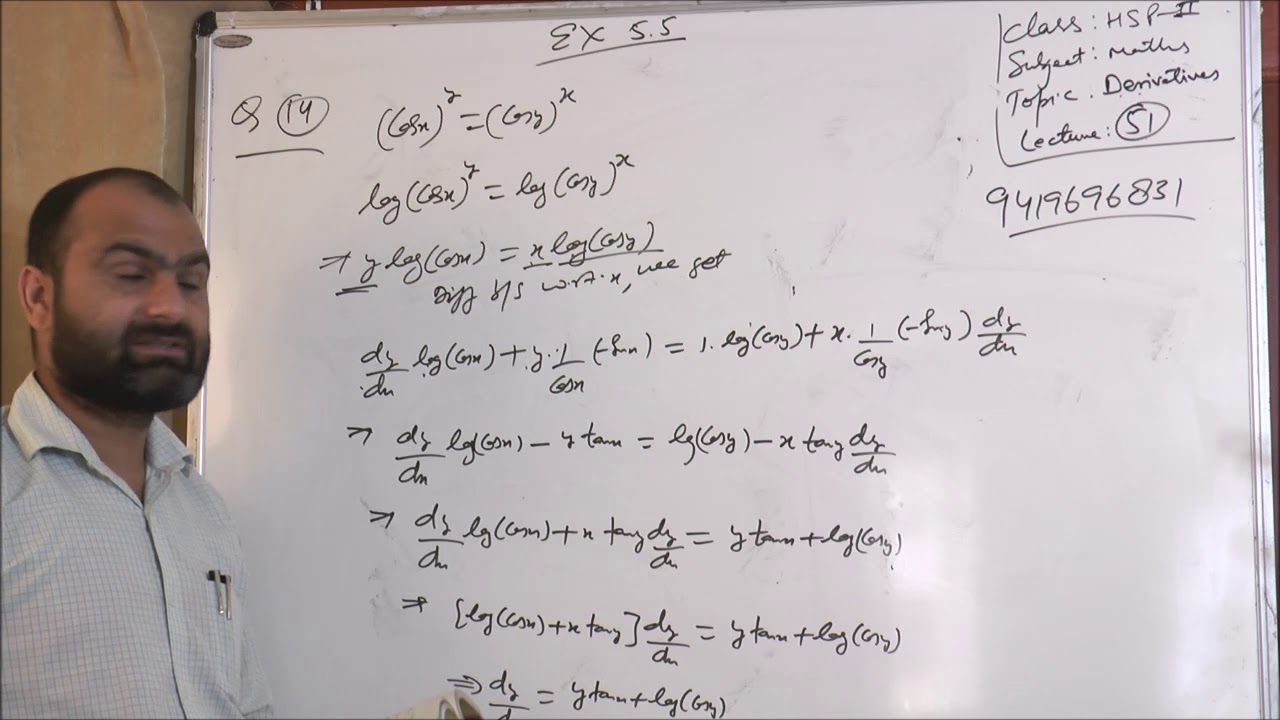 EX 5.5
Class: HSP-II
Subject: Maths
Topic. Derivatives
Lecture: 51
9419696831
Q 14 (Cosx)^y = (Cosy)^x
log(Cosx)^y = log(Cosy)^x
⇒ y log(Cosx) = x log(Cosy)
Diff b/s w.r.t.x, we get
dy/dx log(Cosx) + y·1/Cosx (-Sinx) = 1. log(Cosy) + x·1/Cosy (-Siny) dy/dx
⇒ dy/dx log(Cosx) - y tanx = log(Cosy) - x tany dy/dx
⇒ dy/dx log(Cosx) + x tany dy/dx = y tanx + log(Cosy)
⇒ {log(Cosx) + x tany} dy/dx = y tanx + log(Cosy)
⇒ dy/d = y tanx + log(Cosy)